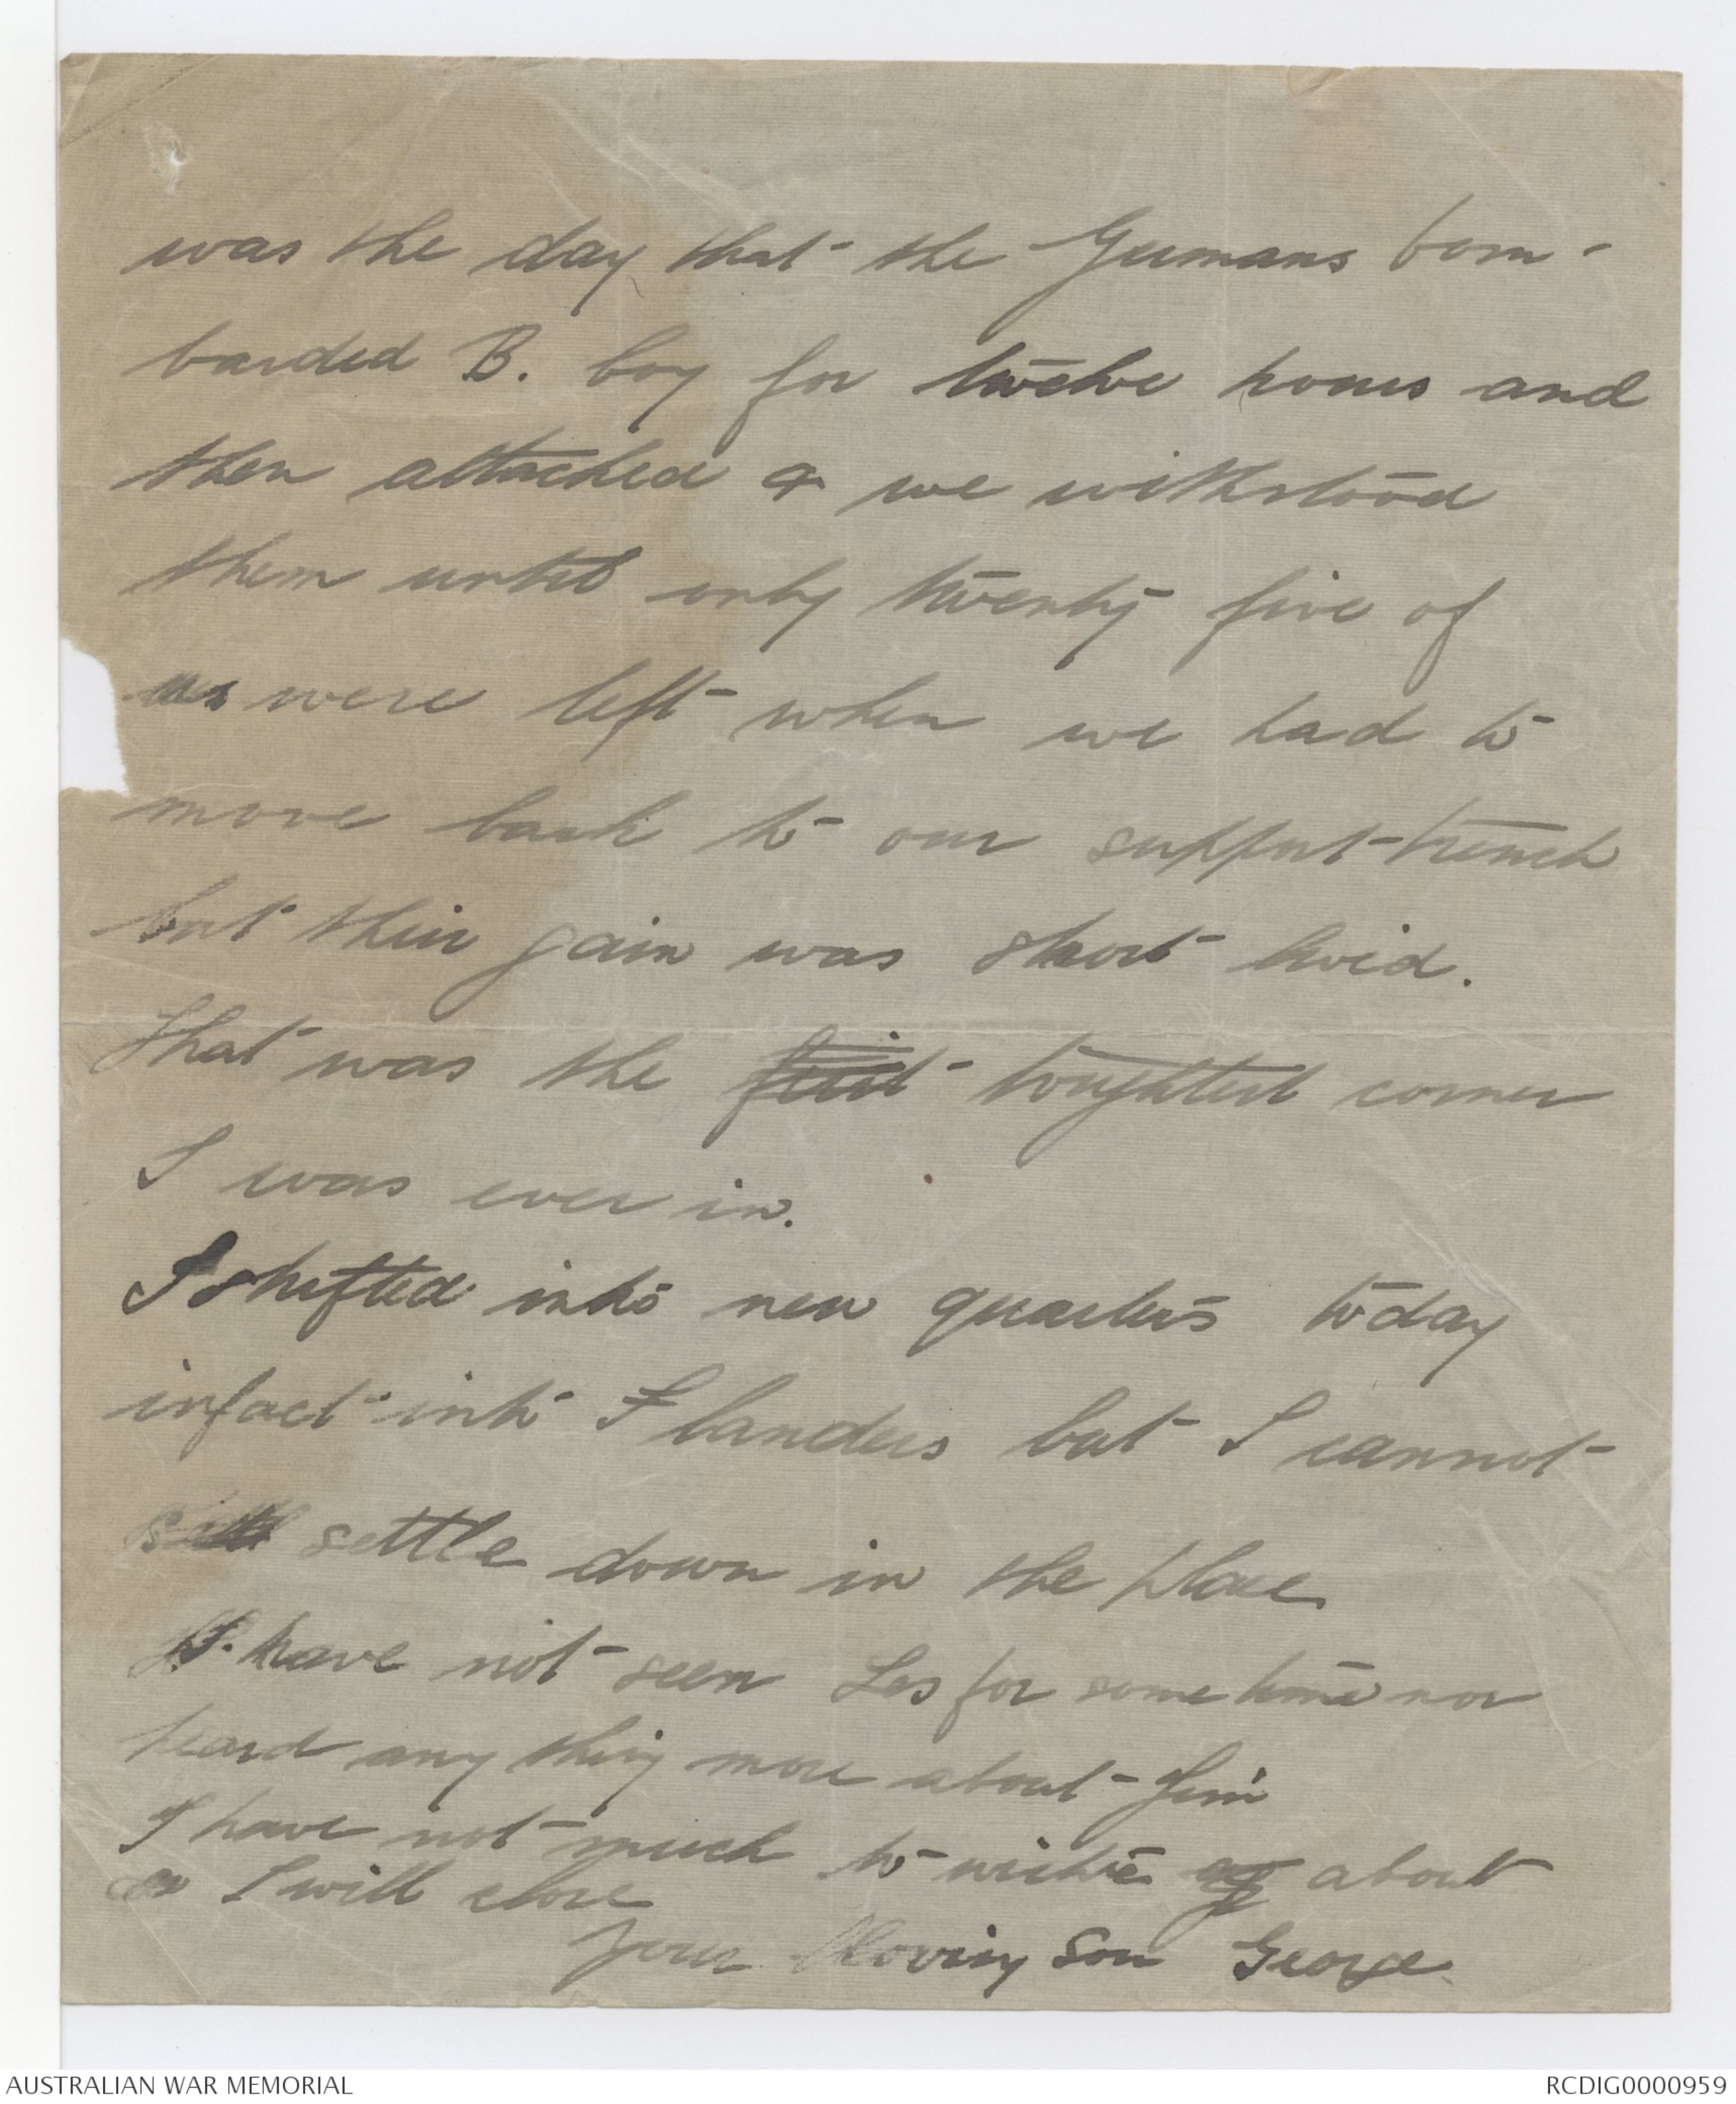 was the day that the Germans bom-
barded B. Coy for twelve hours and
then attacked & we withstood
them until only twenty five of
us were left when we had to
move back to our support trench
but their gain was short lived.
That was the toughtest corner
I was ever in.
I shifted into new quarters today
infact into Flanders but I cannot
settle down in the place
I have not seen Les for some time nor
heard any thing more about Jim
I have not much to write about
so I will close
Your loving Son George
AUSTRALIAN WAR MEMORIAL
RCDIG0000959